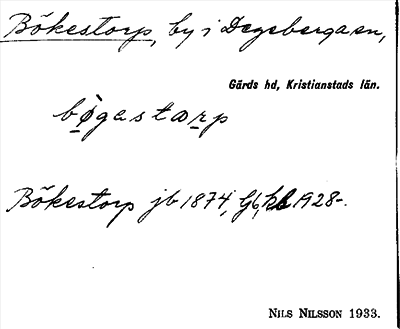 Bökestorp, by i Degeberga sn,
Gärds hd, Kristianstads län.
bøgastarp
Bökestorp jb 1874, Gb, kb 1928-.
NILS NILSSON 1933.